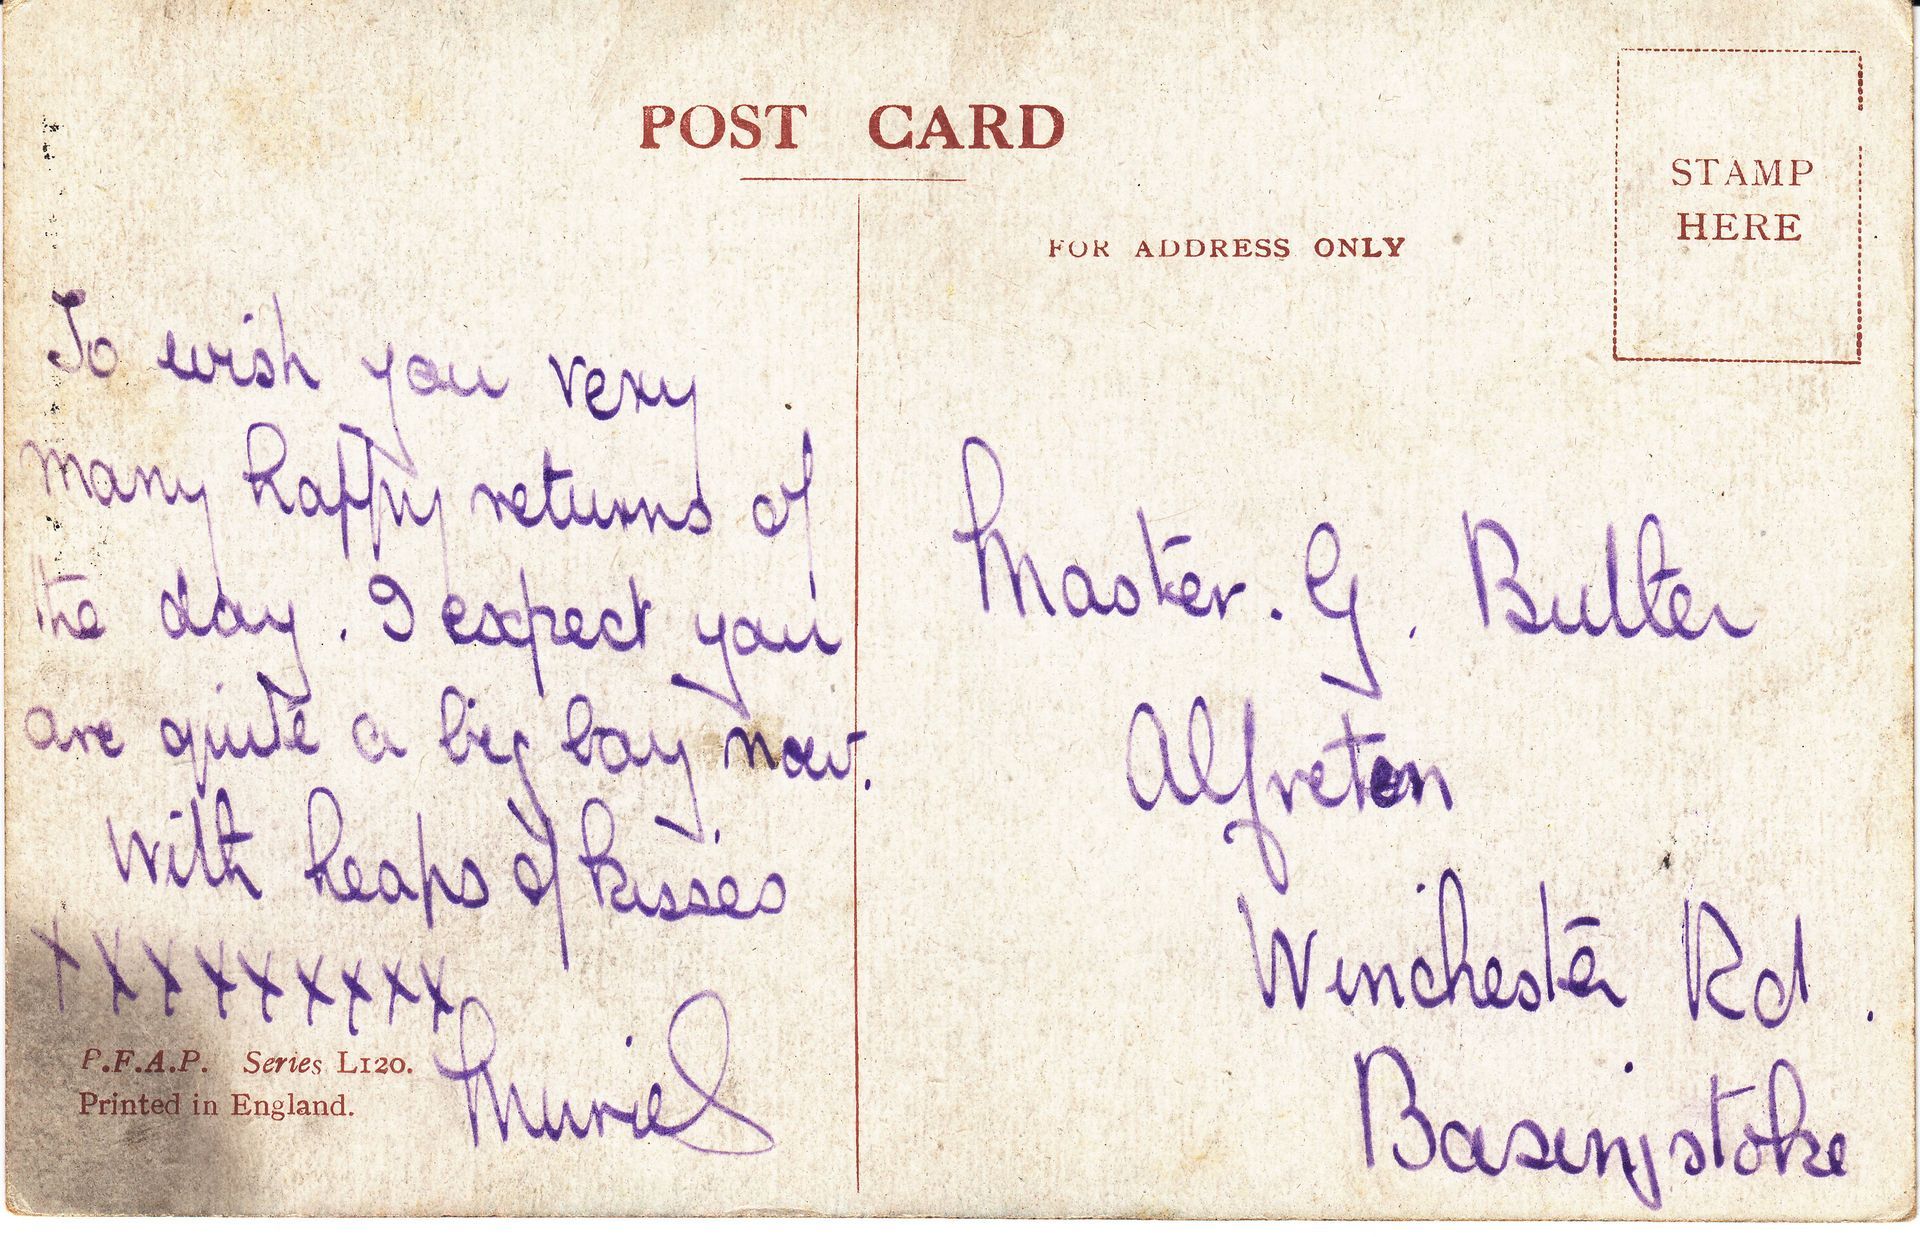 POST CARD
STAMP
HERE
FOR ADDRESS ONLY
To wish you very
many happy returns of
the day. I expect you
are quite a big boy now.
With heaps of kisses
XXXXXXXXX
Muriel
P.F.A.P. Series L120.
Printed in England.
Master. G. Butler
Alfreton
Winchester Rd.
Basingstoke